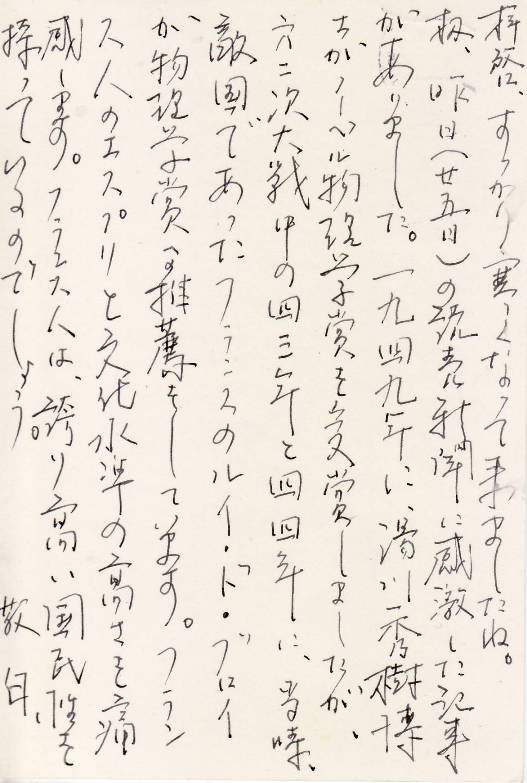 拝啓、すっかり寒くなって来ましたね。
扨、昨日（廿五日）の読売新聞に感激した記事
がありました。一九四九年に、湯川秀樹博
士がノーベル物理学賞を受賞しましたが、
六二次大戦中の四三年と四四年に、当時、
敵国であったフランスのルイ・ド・ブロイ
が物理学賞への推薦をして居ます。フラン
ス人のエスプリと文化水準の高さを痛
感します。フランス人は、誇り高い国民性を
持っているのでしょう。 敬白、